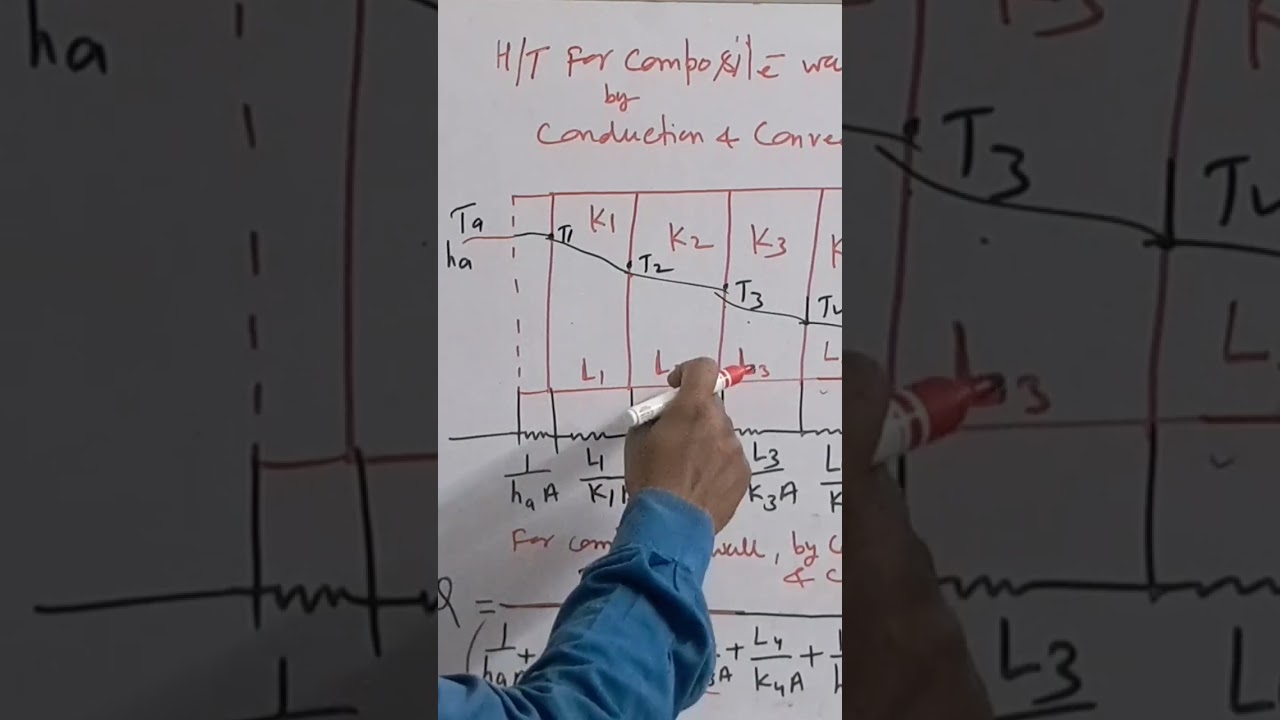 H/T For Composite
by
Conduction & Conve
Ta
ha
K1
K2
K3
K
T1
T2
T3
L1
L
L3
L
1/haA
L1/K1
L3/K3A
L/K
For wall, by C
& C
Q =
1/ha + + L4/K4A +
ha
T3
L
L3
L3
L